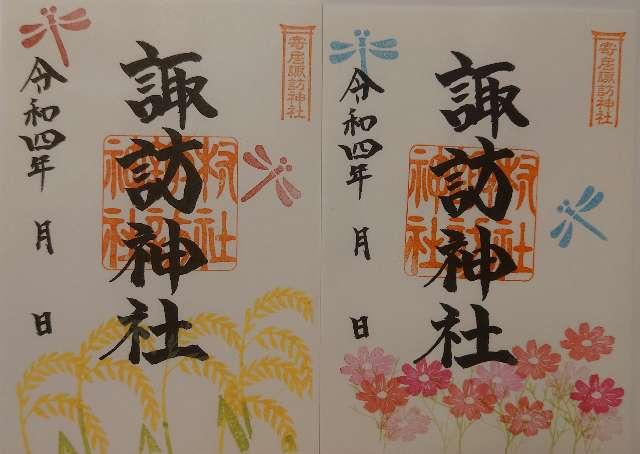 寄居諏訪神社
諏訪神社
令和四年 月 日
寄居諏訪神社
諏訪神社
令和四年 月 日